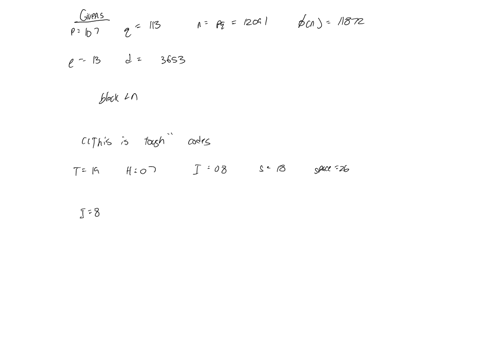 Givens
p = 107 q = 113 n = pq = 12091 φ(n) = 11872
e = 13 d = 3653
block < n
"This is tough" codes
T = 19 H = 07 I = 08 S = 18 space = 26
I = 8